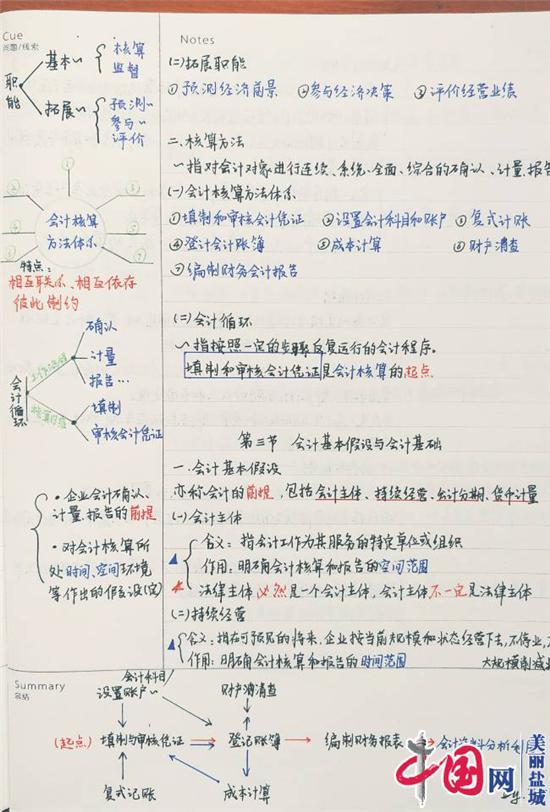 Cue
问题/线索
职能
基本~
核算
监督
拓展~
预测~
参与~
评价
1
2
3
4
5
6
7
会计核算
方法体系
特点:
相互联系、相互依存
彼此制约
会计循环
确认
计量
报告…
填制
审核会计凭证
·企业会计确认、
计量、报告的前提
·对会计核算所
处时间、空间环境
等作出的假设(定)
Notes
(二)拓展职能
①预测经济前景 ②参与经济决策 ③评价经营业绩
二.核算方法
~指对会计对象进行连续、系统、全面、综合的确认、计量、报告
(一)会计核算方法体系
①填制和审核会计凭证 ②设置会计科目和账户 ③复式计账
④登计会计账簿 ⑤成本计算 ⑥财产清查
⑦编制财务会计报告
(二)会计循环
~指按照一定的步骤反复运行的会计程序。
填制和审核会计凭证是会计核算的起点
第三节 会计基本假设与会计基础
一.会计基本假设
亦称会计的前提,包括会计主体、持续经营、会计分期、货币计量
(一)会计主体
含义:指会计工作为其服务的特定单位或组织
作用:明确会计核算和报告的空间范围
法律主体必然是一个会计主体,会计主体不一定是法律主体
(二)持续经营
含义:指在可预见的将来,企业按当前规模和状态经营下去,不停业,
作用:明确会计核算和报告的时间范围 大规模削减业
Summary
总结
会计科目/
设置账户~ 财产清查
(起点) 填制与审核凭证 登记账簿 编制财务报表 会计资料分析利用
复式记账 成本计算
中国网
美丽盐城